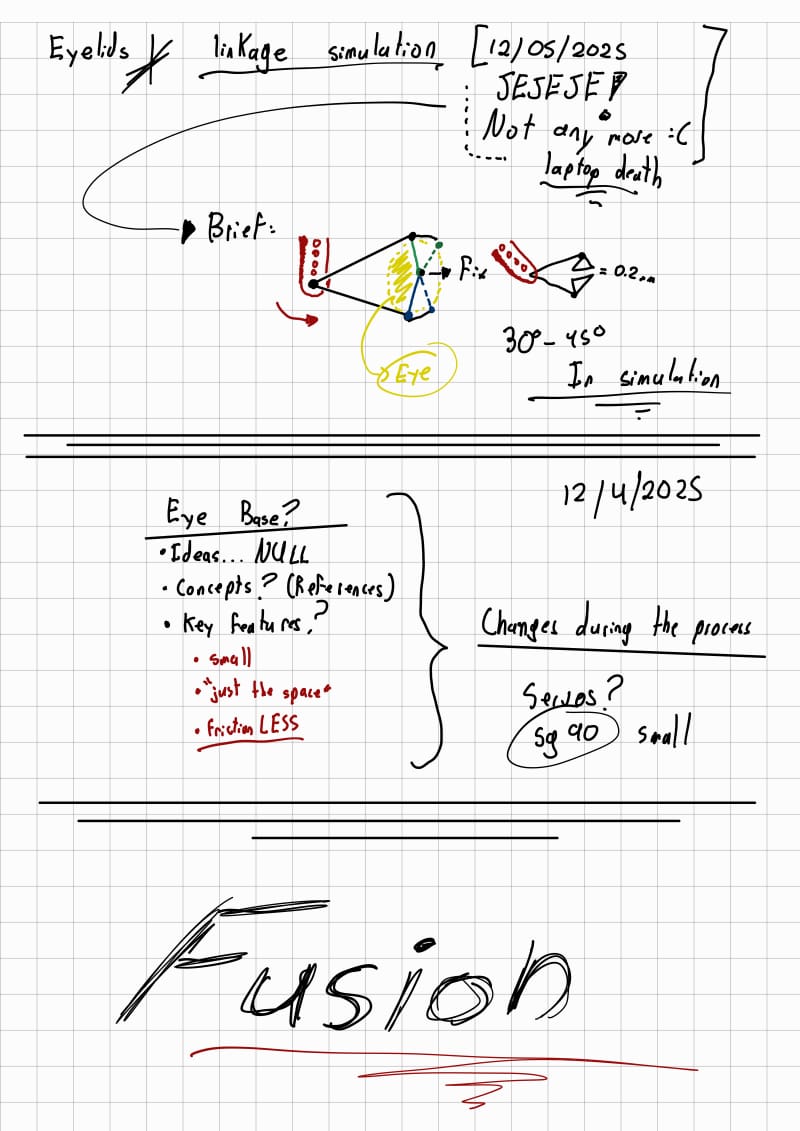 Eyelids linkage simulation [12/05/2025
JEJEJE!
Not any more :C]
laptop death
Brief:
Fix
= 0.2mm
Eye
30° - 45°
In simulation
12/4/2025
Eye Base?
• Ideas... NULL
• Concepts? (References)
• Key features?
• small
• "just the space"
• friction LESS
Changes during the process
Servos?
Sg 90 small
Fusion